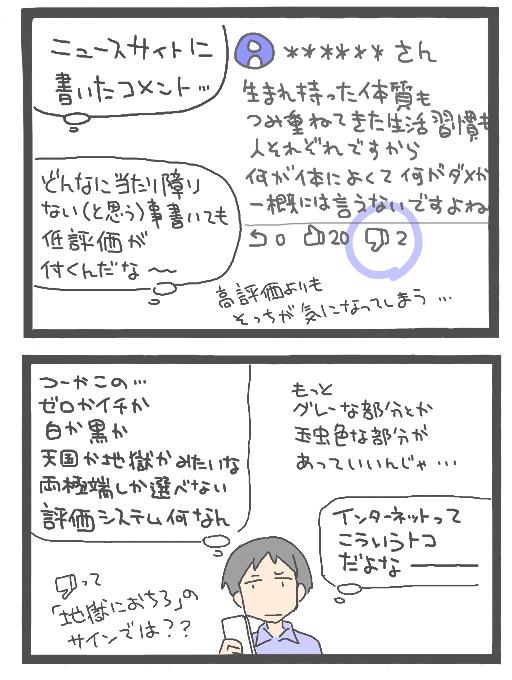 ニュースサイトに
書いたコメント…
****** さん
生まれ持った体質も
つみ重ねてきた生活習慣も
人それぞれですから
何が体によくて何がダメか
一概には言えないですよね
0 20 2
どんなに当たり障り
ない(と思う)事書いても
低評価が
付くんだな〜
高評価よりも
そっちが気になってしまう…
つーかこの…
ゼロかイチか
白か黒か
天国か地獄かみたいな
両極端しか選べない
評価システム何なん
もっと
グレーな部分とか
玉虫色な部分が
あっていいんじゃ…
インターネットって
こういうトコ
だよなー
って
「地獄におちろ」の
サインでは??